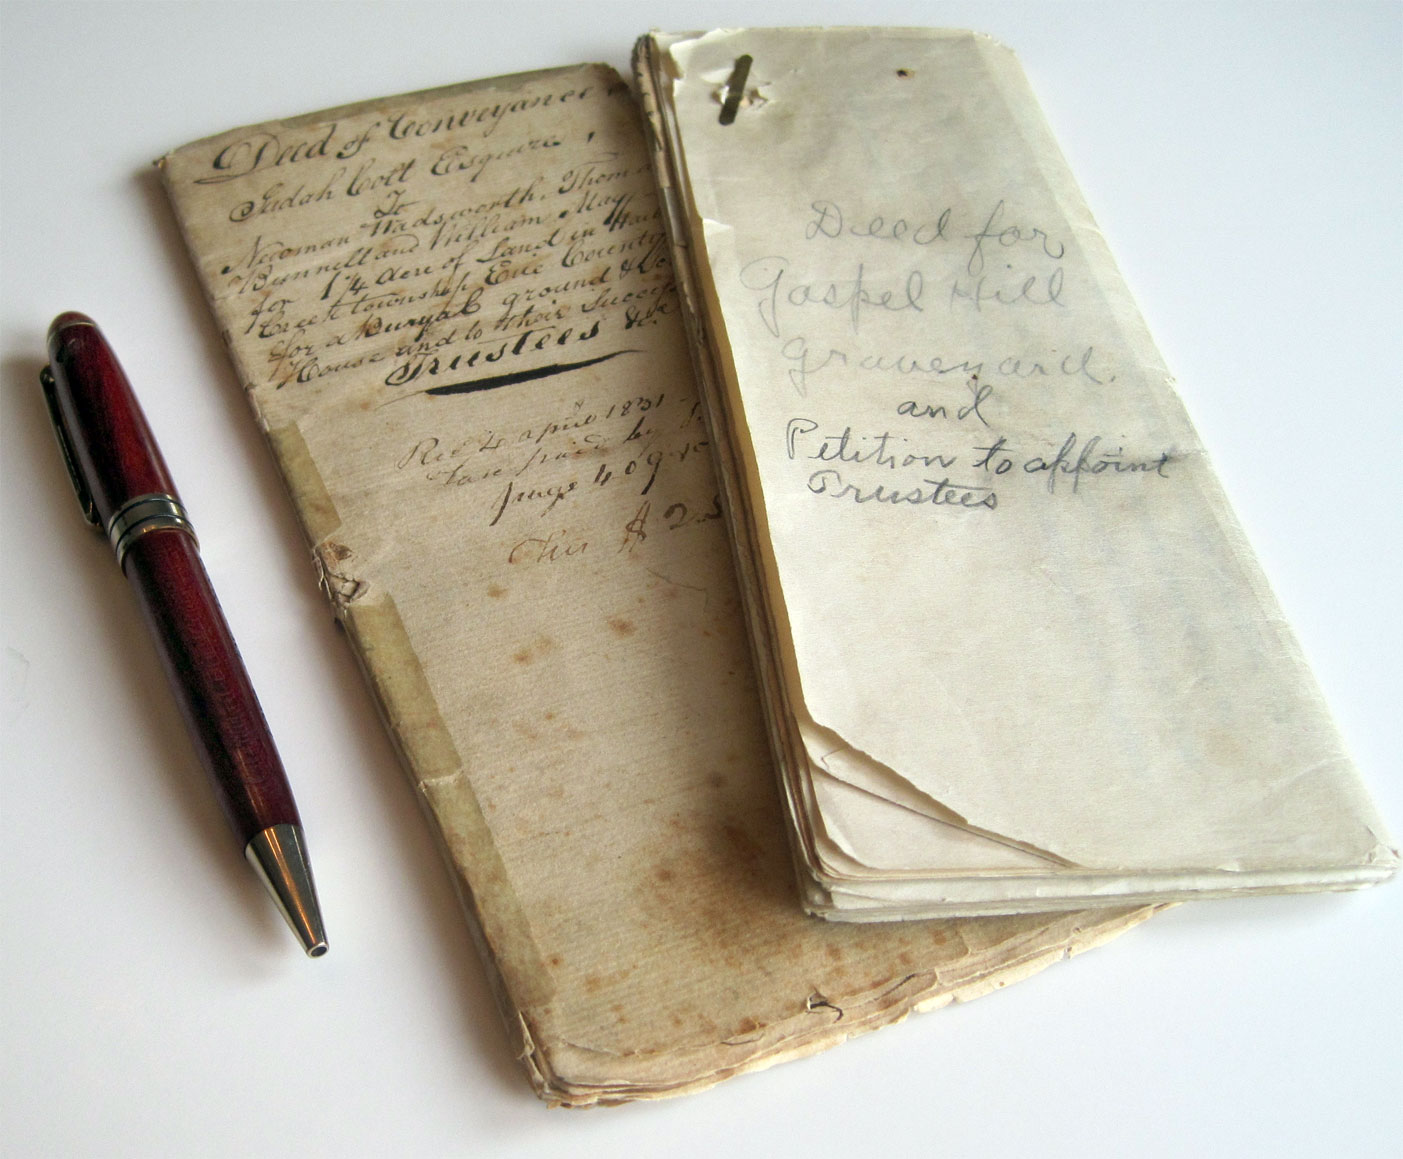 Deed of Conveyance
Judah Colt Esquire,
To
Neoman Wadsworth, Thom
Bunnell and William May
for 1¼ Acre of Land in
Creek township Erie County
for a Buryal ground &
House and to their Success
Trustees &c.
Rec 4 april 1831
paid by
page 409
$2.5
Deed for
Gospel Hill
Graveyard.
and
Petition to appoint
Trustees